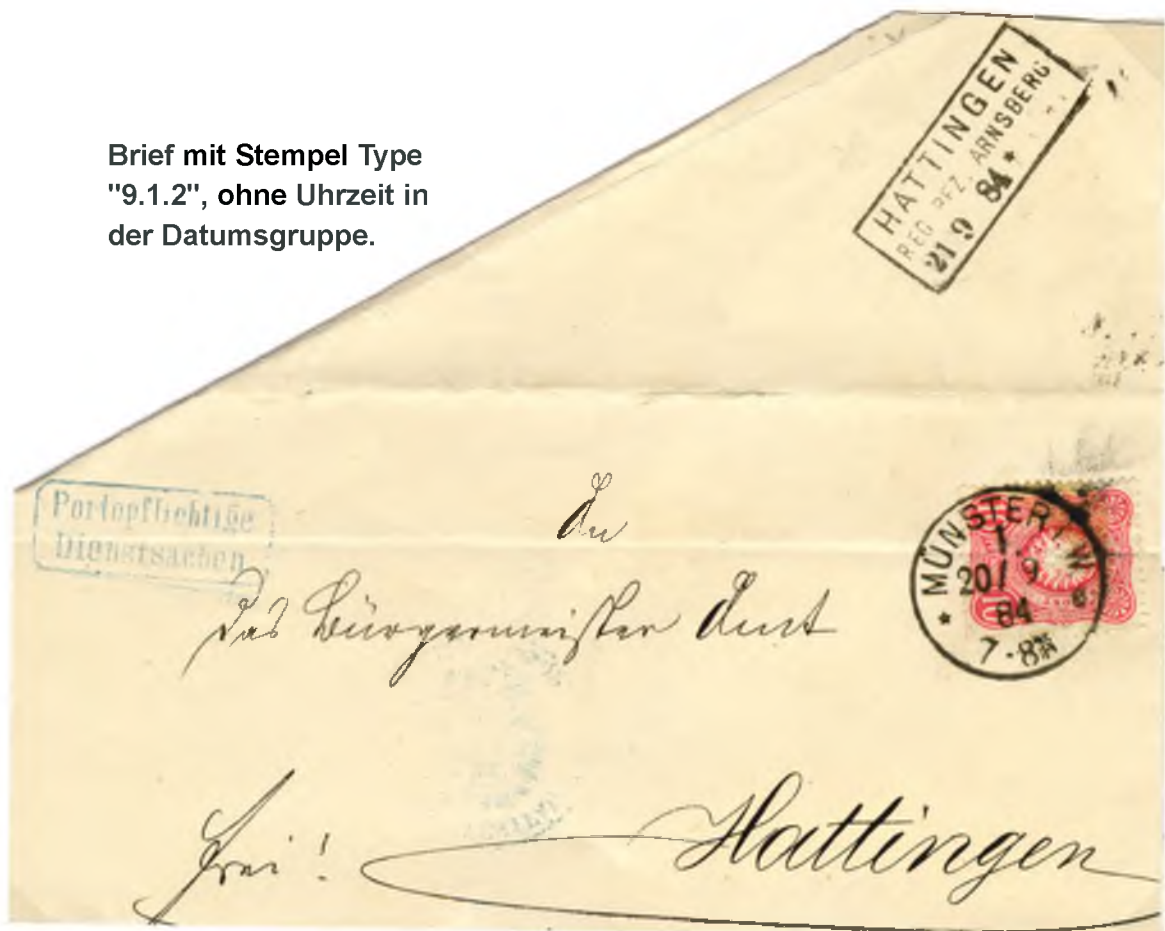 Brief mit Stempel Type
"9.1.2", ohne Uhrzeit in
der Datumsgruppe.
HATTINGEN
REG. BEZ. ARNSBERG
21 9 84 *
Portopflichtige
Dienstsachen
An
das Bürgermeister Amt
MÜNSTER I. W.
1.
20/ 9
84
7-8N
*
frei!
Hattingen